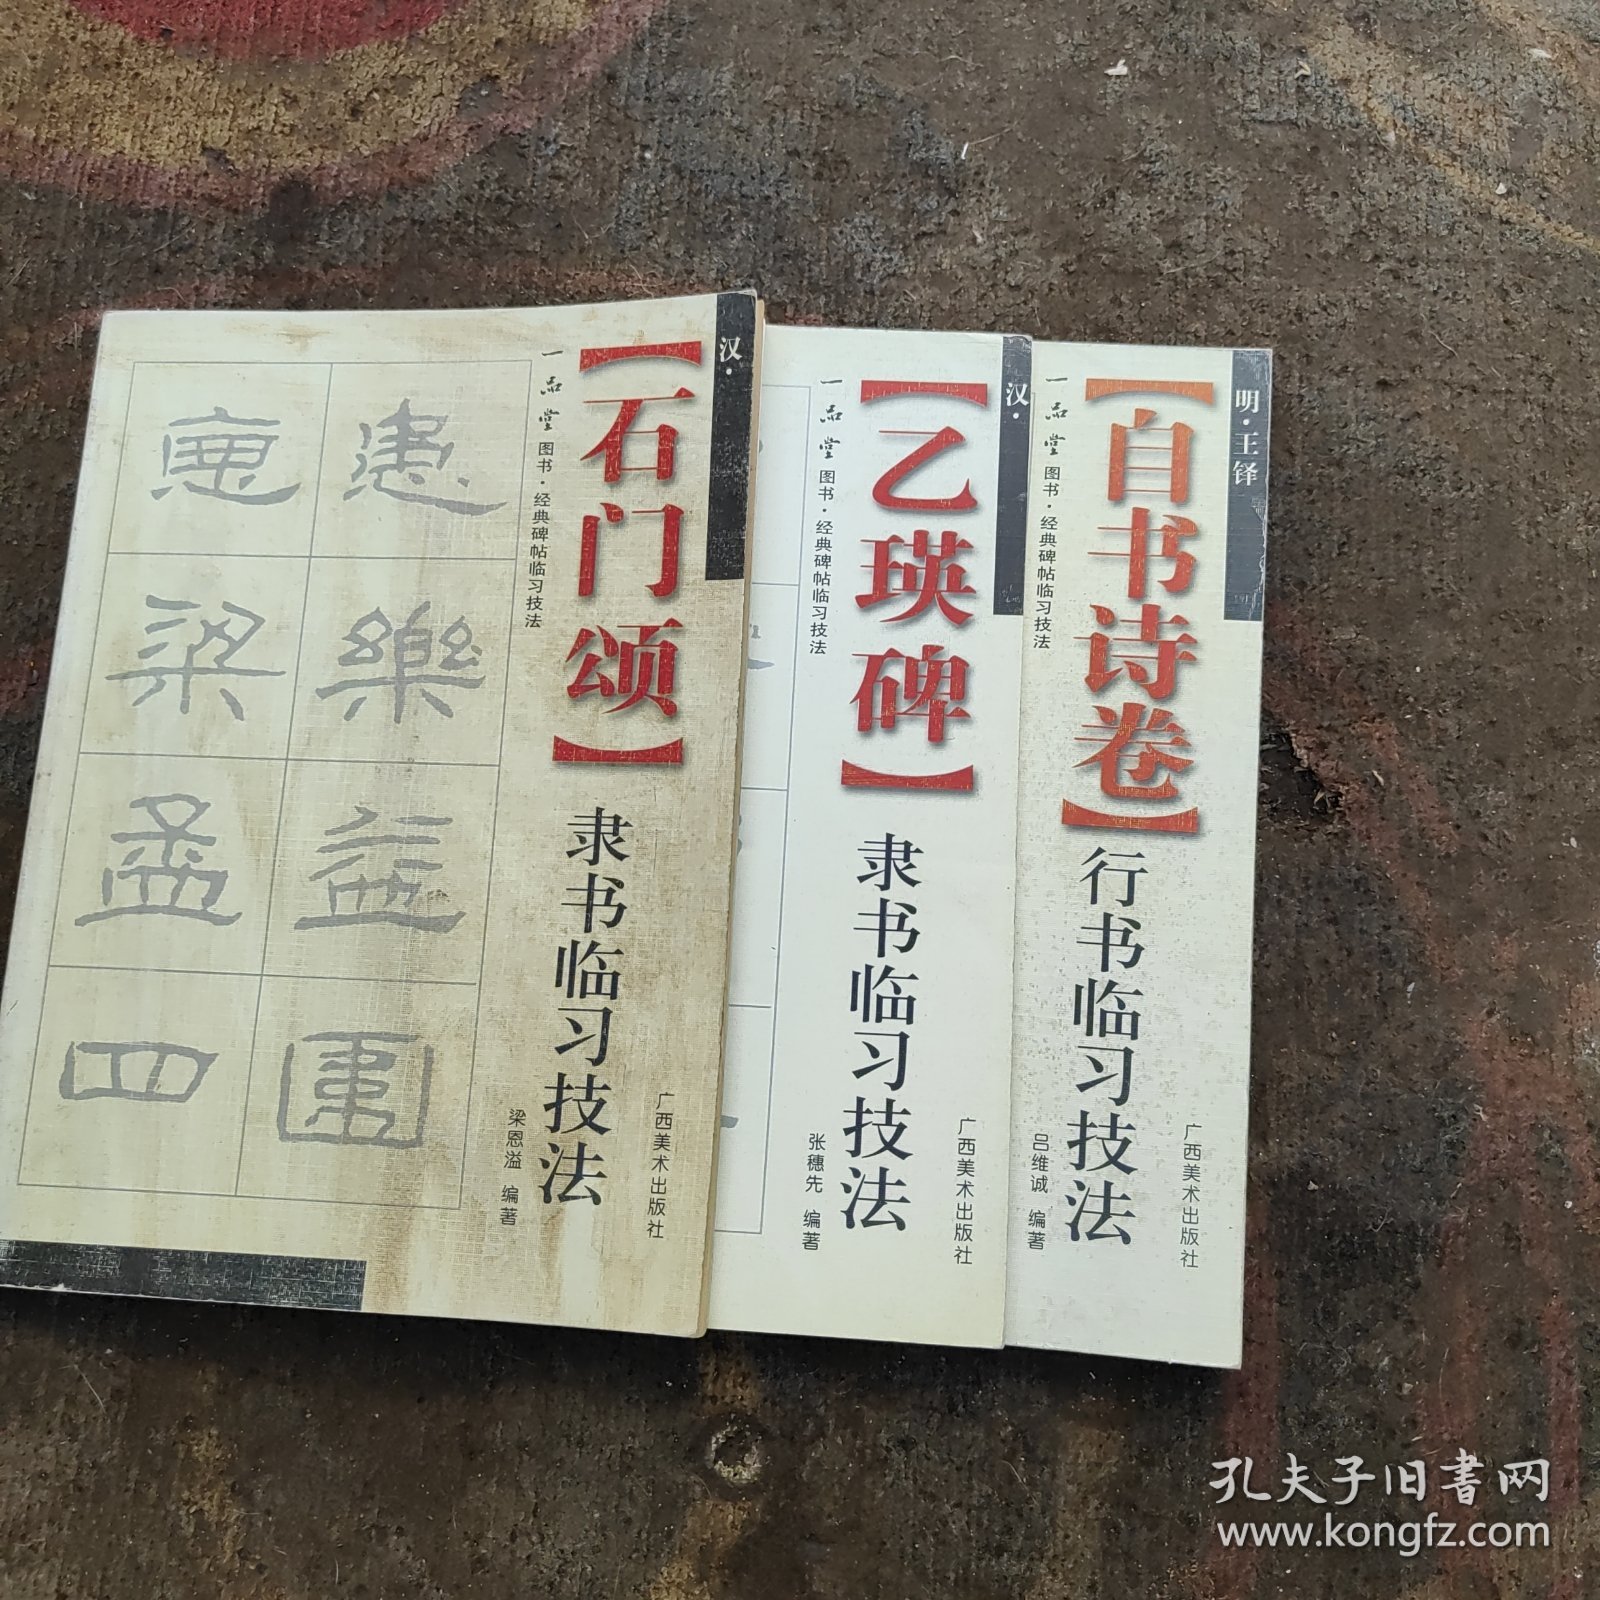 汉·
【石门颂】
隶书临习技法
一品堂 图书·经典碑帖临习技法
梁恩溢 编著
广西美术出版社
惠
樂
益
梁
孟
四
汉·
【乙瑛碑】
隶书临习技法
一品堂 图书·经典碑帖临习技法
张穗先 编著
广西美术出版社
明·王铎
【自书诗卷】
行书临习技法
一品堂 图书·经典碑帖临习技法
吕维诚 编著
广西美术出版社
孔夫子旧書网
www.kongfz.com